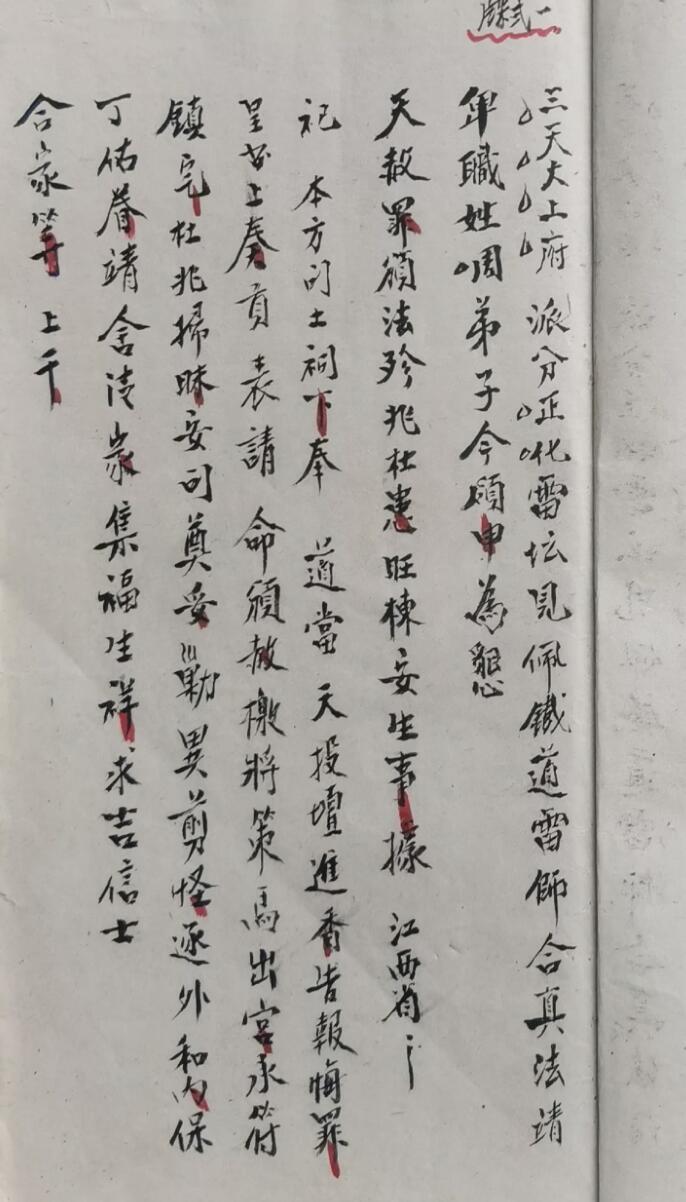 牒式一
三天大上府 派分正㕷雷坛見佩鐡道雷師合真法靖
年職姓啁弟子今頋申為懇
天赦罪頒法殄兆杜患旺棟安生事據 江西省
祀 本方司土祠下奉 道當 天投壇進香告報悔罪
呈安上奏貢表請 命頒赦檄將策馬出宫承符
鎮宅杜兆掃昧安司奠安 勦異剪怪逐外和內保
丁佑眷靖舍清家集福生祥求吉信士
合家等 上千